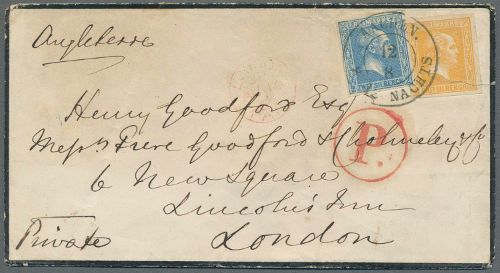 Angleterre
12
8
NACHTS
Henry Goodford Esq
Messrs Frere Goodford & Cholmeley
P.
6 New Square
Lincoln's Inn
Private
London